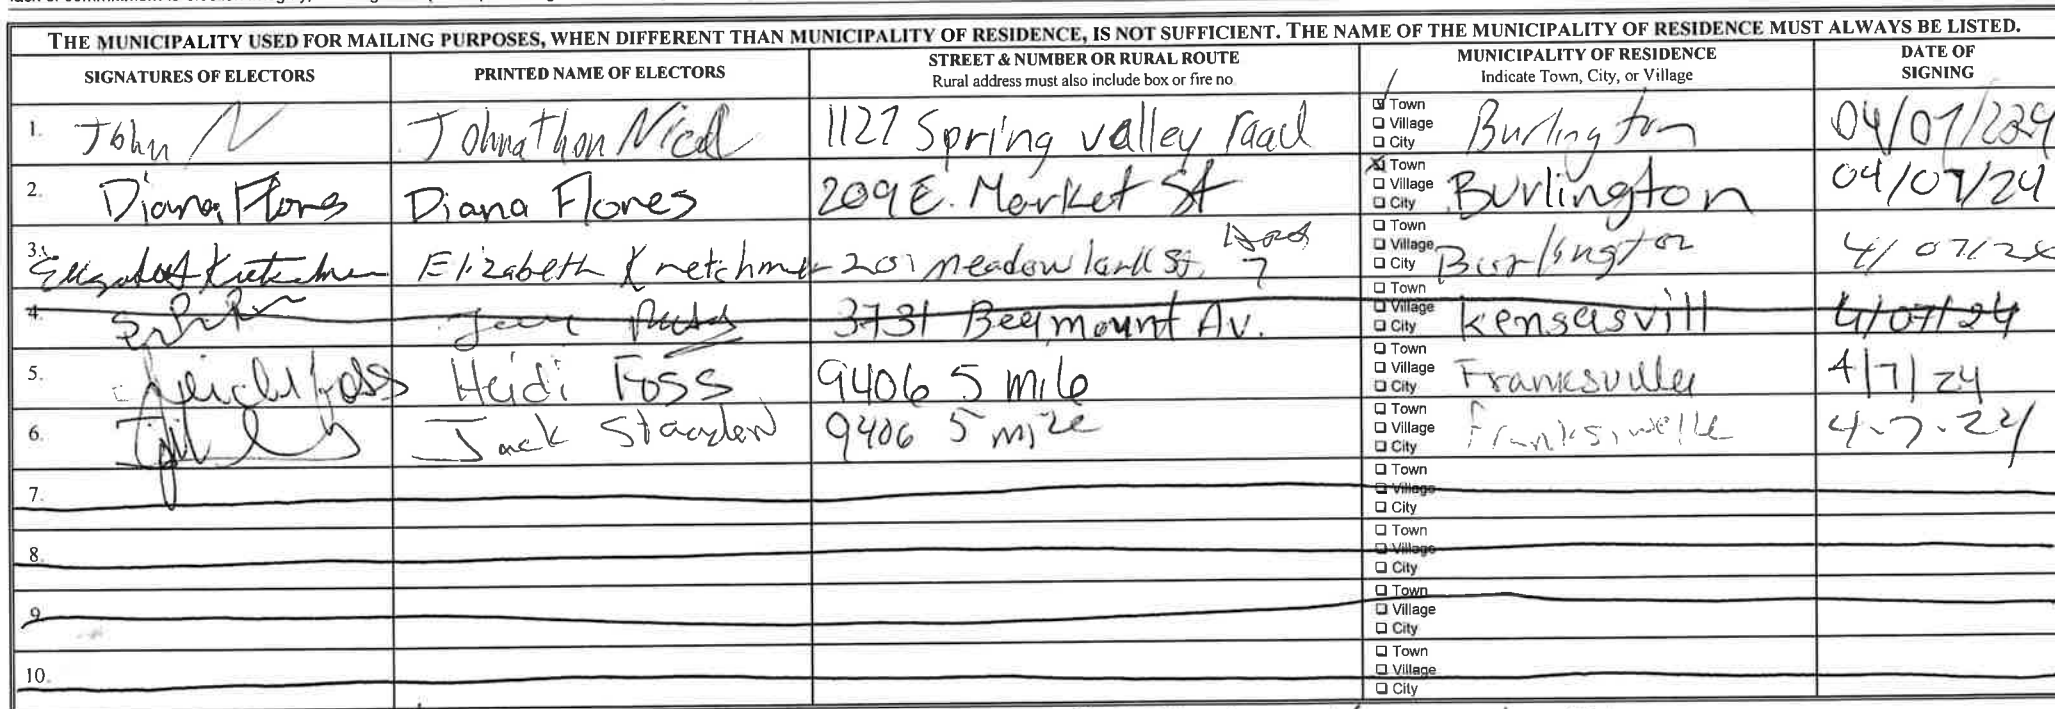 THE MUNICIPALITY USED FOR MAILING PURPOSES, WHEN DIFFERENT THAN MUNICIPALITY OF RESIDENCE, IS NOT SUFFICIENT. THE NAME OF THE MUNICIPALITY OF RESIDENCE MUST ALWAYS BE LISTED.
SIGNATURES OF ELECTORS
PRINTED NAME OF ELECTORS
STREET & NUMBER OR RURAL ROUTE
Rural address must also include box or fire no.
MUNICIPALITY OF RESIDENCE
Indicate Town, City, or Village
DATE OF
SIGNING
1. John N Johnathon Nicol 1127 Spring valley raad
Town
Village
City
Burlington 04/07/2024
2. Diana Flores Diana Flores 209 E. Market St
Town
Village
City
Burlington 04/07/24
3. Elizabeth Kretchmer Elizabeth Kretchmer 201 meadow lark St. 7
Town
Village
City
Burlington 4/07/24
4. 3731 Beemount Av.
Town
Village
City
Kensasvill 4/07/24
5. Heidi Foss Heidi Foss 9406 5 mile
Town
Village
City
Franksville 4/7/24
6. Jack 9406 5 mile
Town
Village
City
4-7-24
7.
Town
Village
City
8.
Town
Village
City
9.
Town
Village
City
10.
Town
Village
City